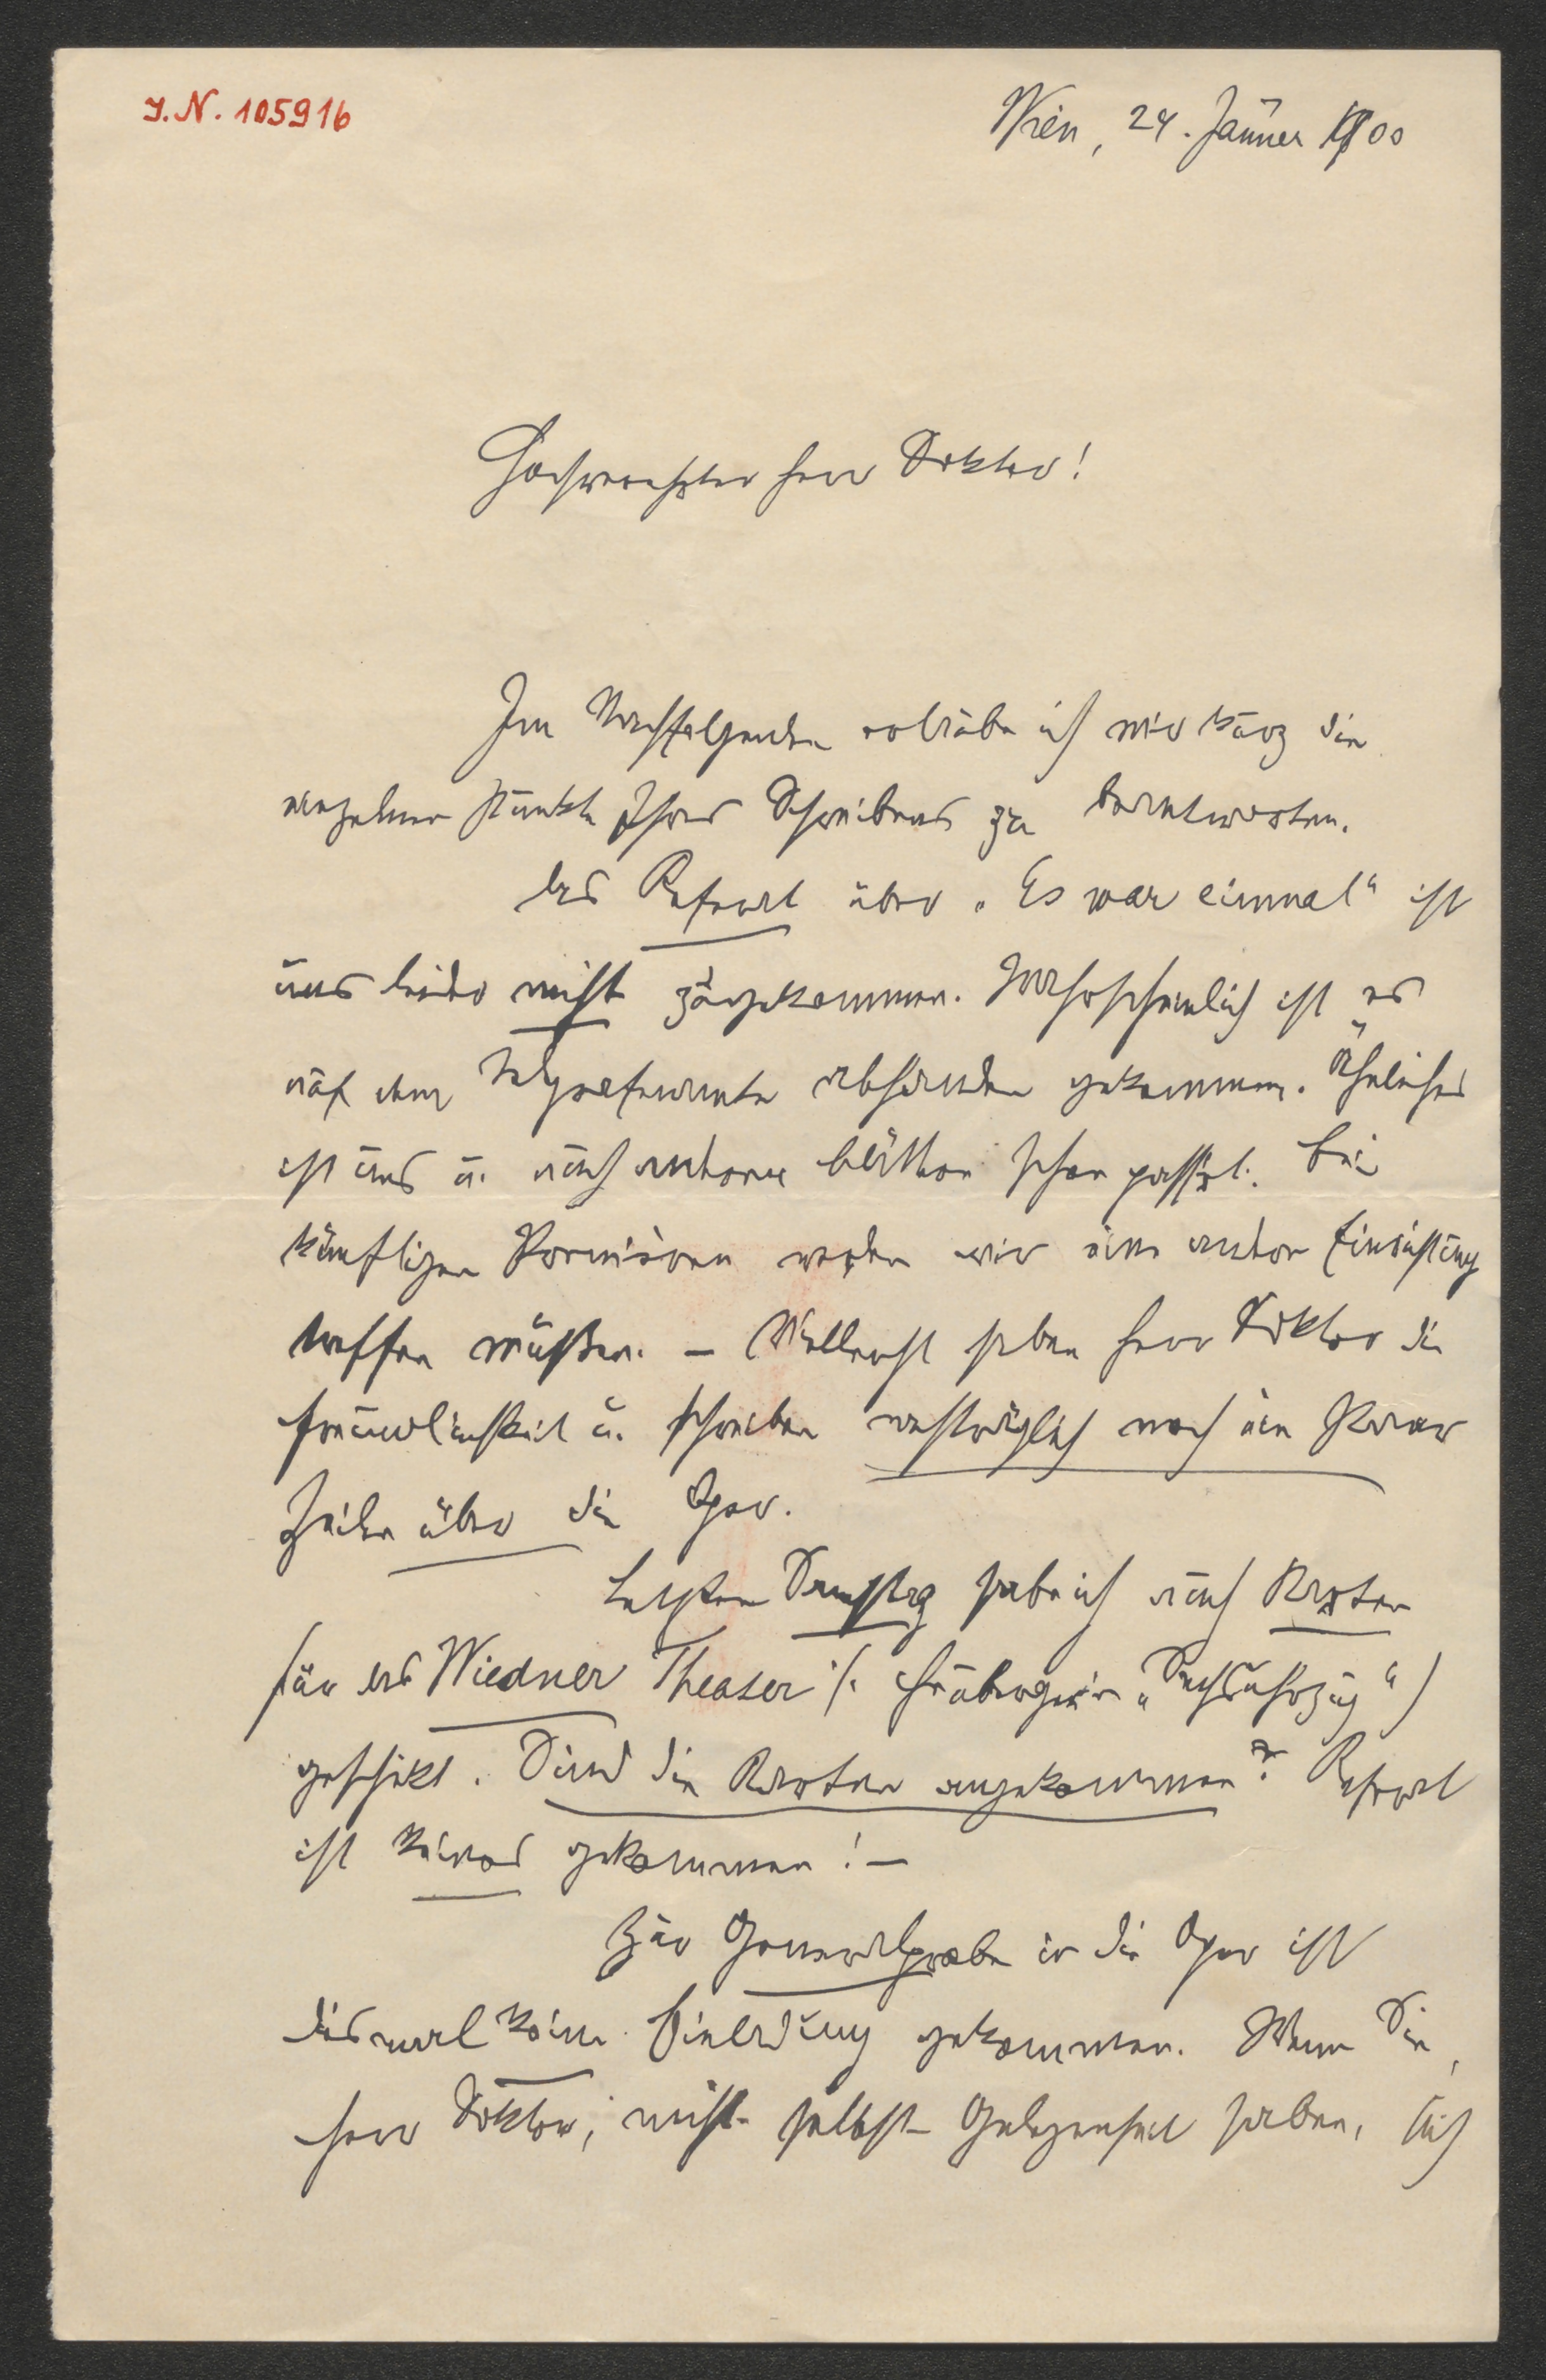 J.N. 105916
Wien, 24. Jänner 1900
Hochverehrter Herr Doktor!
Im Nachfolgenden erlaube ich mir kurz die
einzelnen Punkte Ihres Schreibens zu beantworten.
Das Referat über „Es war einmal“ ist
uns leider nicht zugekommen. Wahrscheinlich ist es
auf dem Telegrafenamte abhanden gekommen. Ähnliches
ist uns u. auch anderen Blättern schon passirt. Bei
künftigen Premièren werden wir eine andere Einrichtung
treffen müßen. – Vielleicht haben Herr Doktor die
Freundlichkeit u. schreiben nachträglich noch ein Paar
Zeilen über die Oper.
Letzten Samstag habe ich auch Karten
für das Wiedner Theater /:
geschickt. Sind die Karten angekommen? Referat
ist keines gekommen! –
Zur Generalprobe in die Oper ist
diesmal keine Einladung gekommen. Wenn Sie,
Herr Doktor, nicht selbst Gelegenheit haben, sich